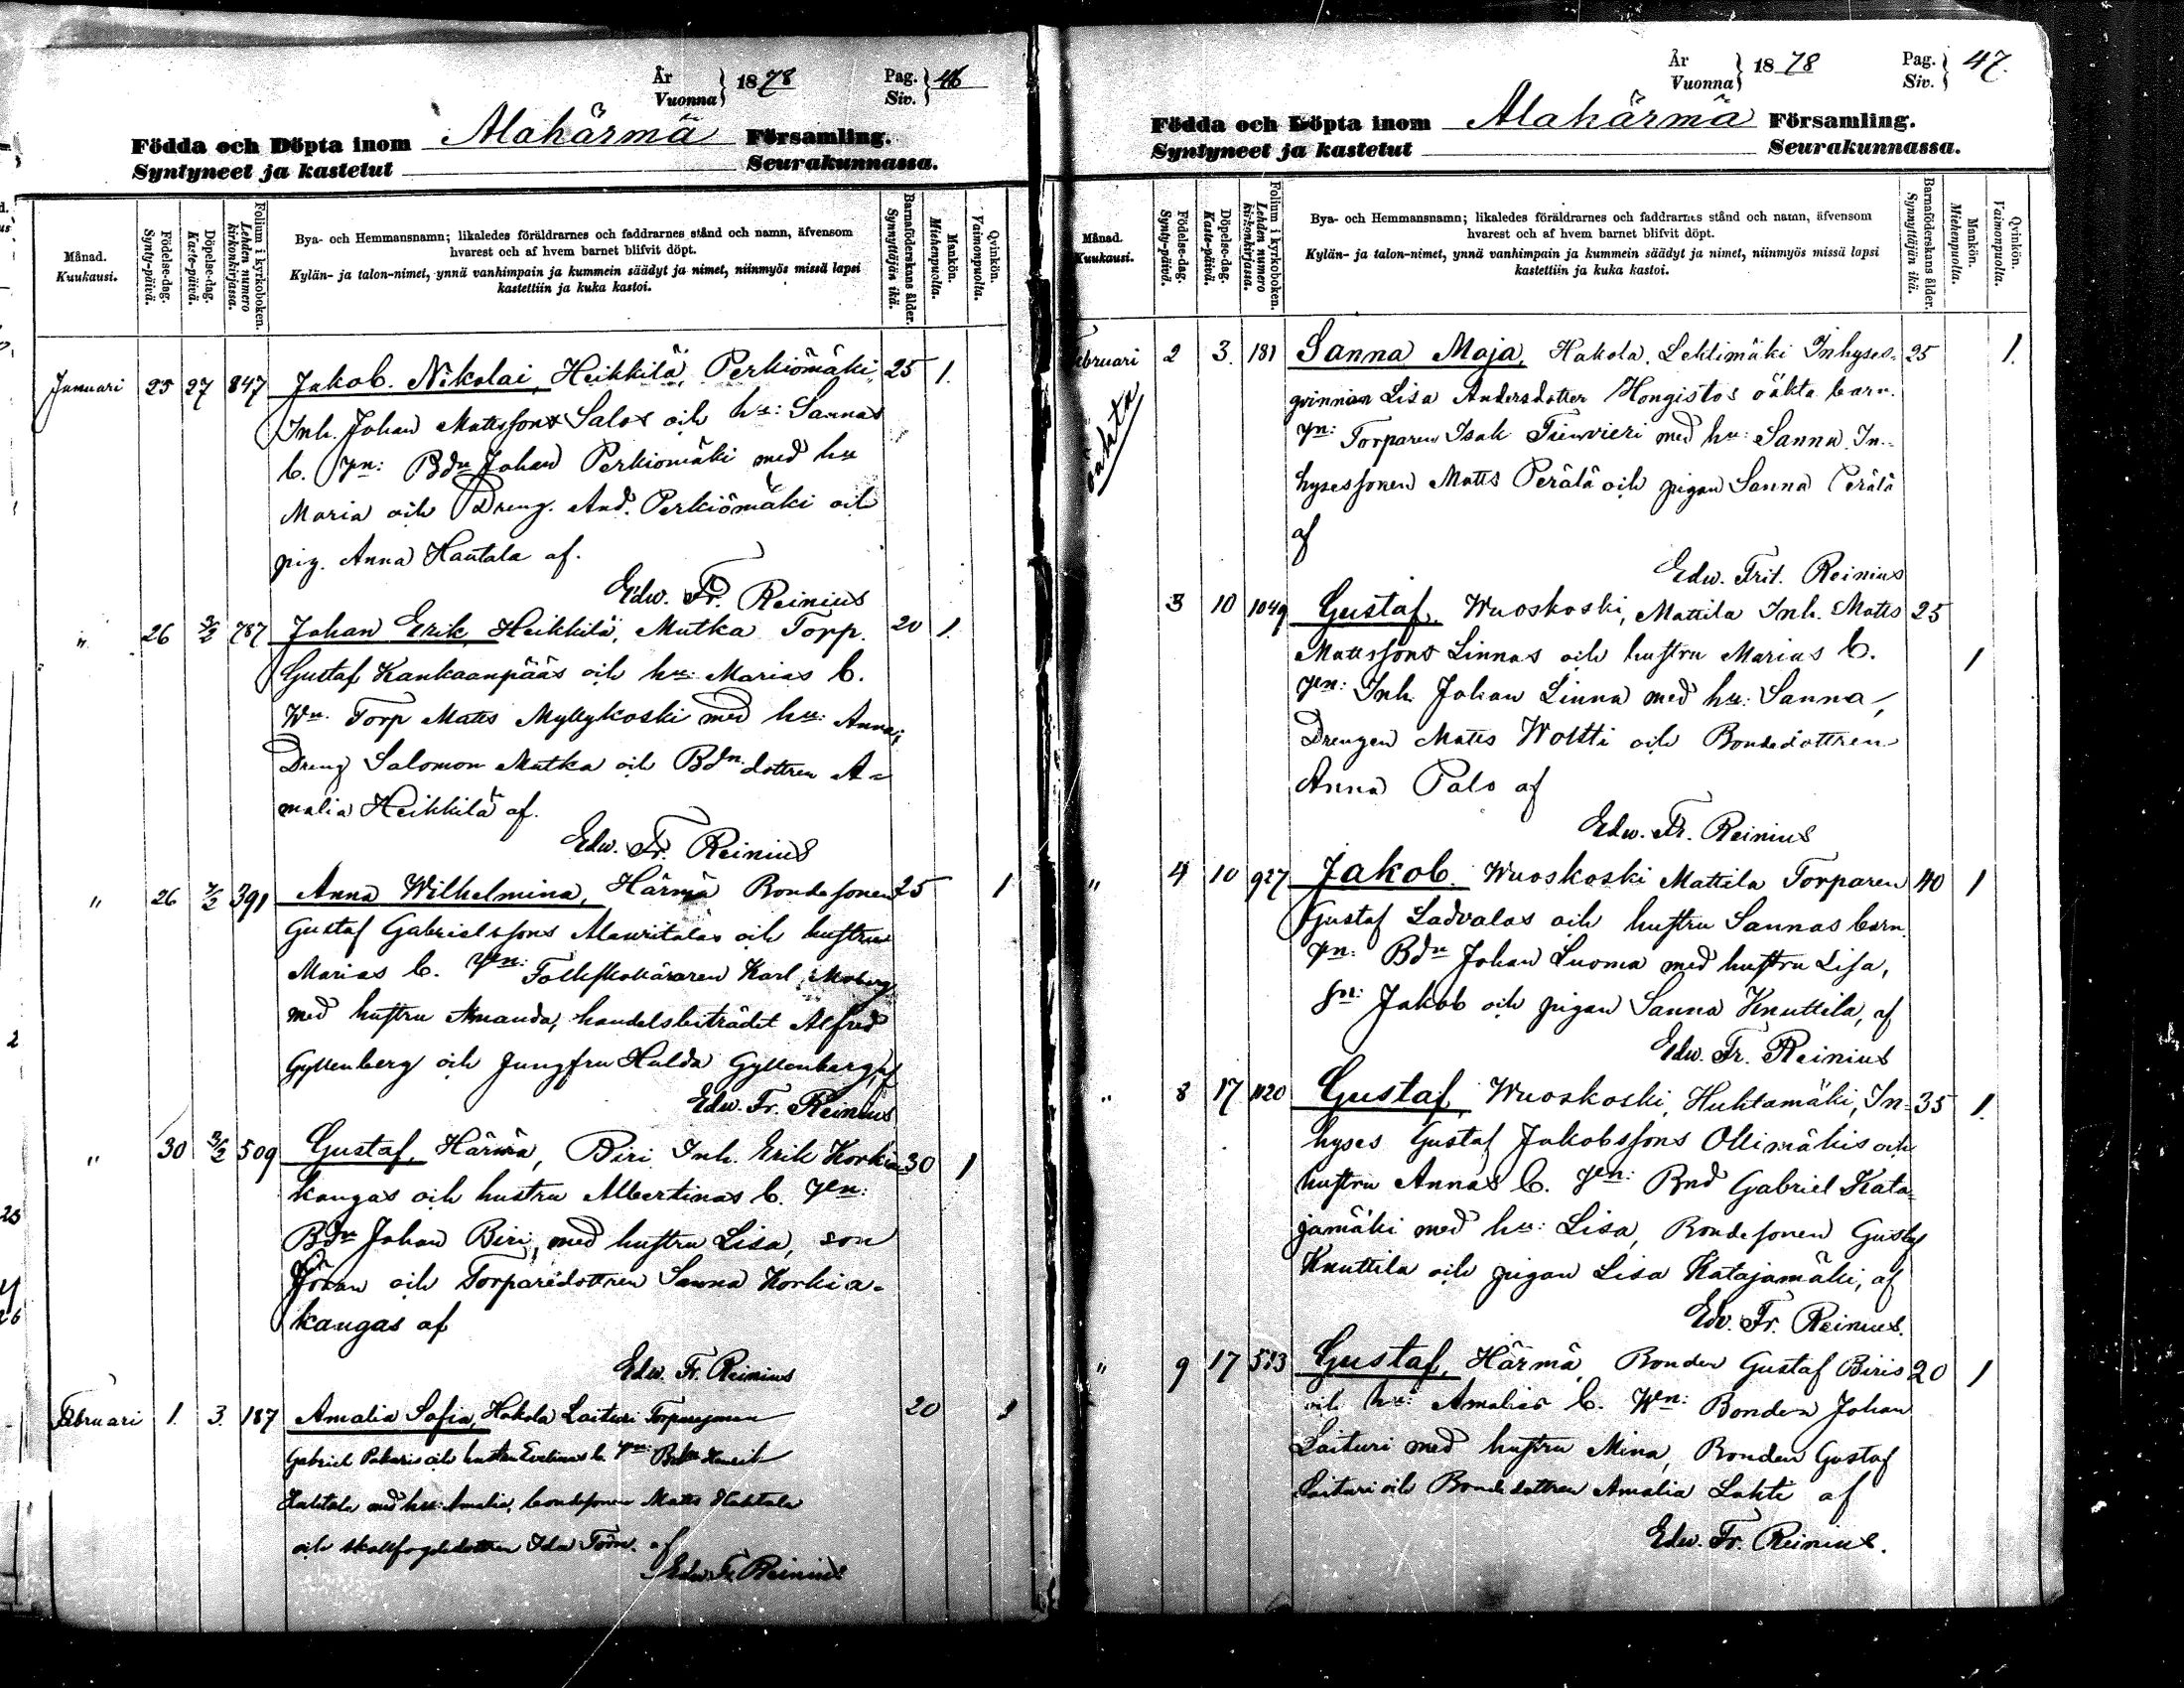 År
Vuonna } 1878 Pag.
Siv. } 46
Födda och Döpta inom Alahärmä Församling.
Syntyneet ja kastetut Seurakunnassa.
Månad.
Kuukausi.
Födelse-dag.
Synty-päivä.
Döpelse-dag.
Kaste-päivä.
Folium i kyrkoboken.
Lehden numero
kirkonkirjassa.
Bya- och Hemmansnamn; likaledes föräldrarnes och faddrarnes stånd och namn, äfvensom
hvarest och af hvem barnet blifvit döpt.
Kylän- ja talon-nimet, ynnä vanhimpain ja kummein säädyt ja nimet, niinmyös missä lapsi
kastettiin ja kuka kastoi.
Barnaföderskans ålder.
Synnyttäjän ikä.
Mankön.
Miehenpuolta.
Qvinkön.
Vaimonpuolta.
Januari 25 27 847 Jakob Nikolai, Heikkilä, Perkiömäki 25 1.
Inh. Johan Mattssons Salos och hu: Sannas
b. Vn: Bdn Johan Perkiomäki med hu
Maria och Dreng. And. Perkiömäki och
pig. Anna Hautala af.
Edw. Fr. Reinius
" 26 3/2 787 Johan Erik, Heikkilä, Mutka Torp. 20 1.
Gustaf Kankaanpääs och hu: Marias b.
Wn. Torp Matts Myllykoski med hu: Anna;
Dreng Salomon Mutka och Bdn dottren A=
malia Heikkilä af.
Edw. Fr. Reinius
" 26 3/2 391 Anna Wilhelmina, Härmä Bondesonen 25 1
Gustaf Gabrielssons Mauritalas och hustru
Marias b. Vn: Folkskolläraren Karl Moberg
med hustru Amanda, handelsbiträdet Alfred
Gyllenberg och Jungfru Hulda Gyllenberg, af
Edw. Fr. Reinius
" 30 3/2 509 Gustaf, Härmä, Biri Inh. Erik Korkia 30 1
kangas och hustru Albertinas b. Vn:
Bdn Johan Biri, med hustru Lisa, son
Johan och Torparedottren Sanna Korkia=
kangas af
Edw. Fr. Reinius
Februari 1. 3. 187 Amalia Sofia, Hakola Laituri Torparesonen 20 1
Gabriel och hustru Evelinas b. Vn: Bdn Henrik
med hu: Amalia, bondesonen Matts
och dottren Ida Törn. af
Edw. Fr. Reinius
År
Vuonna } 1878 Pag.
Siv. } 47.
Födda och Döpta inom Alahärmä Församling.
Syntyneet ja kastetut Seurakunnassa.
Månad.
Kuukausi.
Födelse-dag.
Synty-päivä.
Döpelse-dag.
Kaste-päivä.
Folium i kyrkoboken.
Lehden numero
kirkonkirjassa.
Bya- och Hemmansnamn; likaledes föräldrarnes och faddrarnes stånd och namn, äfvensom
hvarest och af hvem barnet blifvit döpt.
Kylän- ja talon-nimet, ynnä vanhimpain ja kummein säädyt ja nimet, niinmyös missä lapsi
kastettiin ja kuka kastoi.
Barnaföderskans ålder.
Synnyttäjän ikä.
Mankön.
Miehenpuolta.
Qvinkön.
Vaimonpuolta.
Februari 2 3. 181 Sanna Maja, Hakola, Lehtimäki Inhyses- 25 1.
oäkta
qvinnan Lisa Andersdotter Hongistos oäkta barn.
Vn: Torparen Isak med hu: Sanna. In-
hysessonen Matts Perälä och pigan Sanna Perälä
af
Edw. Frit. Reinius
3 10 1049 Gustaf, Wuoskoski, Mattila Inh. Matts 25
Mattssons Linnas och hustru Marias b. 1
Vn: Inh. Johan Linna med hu: Sanna,
Drengen Matts Woltti och Bondedottren
Anna Palo af
Edw. Fr. Reinius
" 4 10 927 Jakob. Wuoskoski Mattila Torparen 40 1
Gustaf Ladvalas och hustru Sannas barn.
Vn: Bdn Johan Luoma med hustru Lisa,
sn: Jakob och pigan Sanna Knuttila, af
Edw. Fr. Reinius
" 8 17 1120 Gustaf, Wuoskoski, Huhtamäki, In= 35 1.
hyses Gustaf Jakobssons Ollimäkis och
hustru Annas b. Vn: Bnd Gabriel Kata=
jamäki med hu: Lisa, Bondesonen Gustaf
Knuttila och pigan Lisa Katajamäki, af
Edv. Fr. Reinius.
" 9 17 513 Gustaf, Härmä, Bonden Gustaf Biris 20 1
och hu: Amalias b. Wn: Bonden Johan
Laituri med hustru Mina, Bonden Gustaf
Laituri och Bondedottren Amalia Lahti af
Edw. Fr. Reinius.